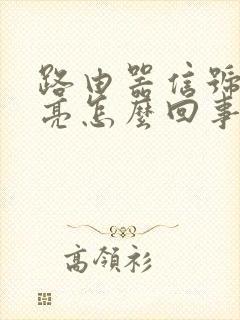 路由器信號
亮怎麼回事
高領衫